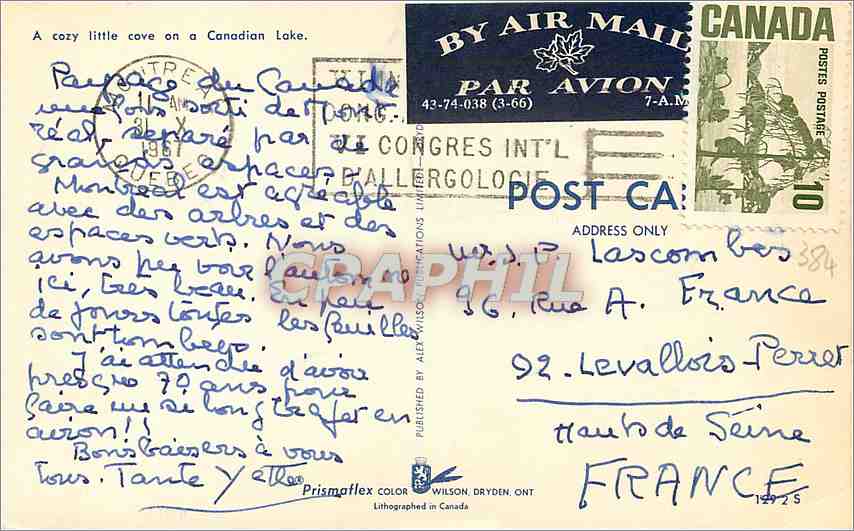 A cozy little cove on a Canadian Lake.
Paysage du Canada
une fois sorti de Mont
réal séparé par de
grands espaces.
Montréal est agréable
avec des arbres et des
espaces verts. Nous
avons pu voir l'automne
ici, très beau. En peu
de jours toutes les feuilles
sont tombées.
J'ai attendu d'avoir
presque 70 ans pour
faire un si long trajet en
avion!!
Bons baisers à vous
tous. Tante Yette
MONTREAL
AM
X
1967
QUEBEC
VI CONGRES INT'L
D'ALLERGOLOGIE
BY AIR MAIL
PAR AVION
43-74-038 (3-66) 7-A.M
CANADA
POSTES POSTAGE
10
POST CA
ADDRESS ONLY
Lascombes
96, Rue A. France
92-Levallois-Perret
Hauts de Seine
FRANCE
384
CRAPHIL
PUBLISHED BY ALEX WILSON PUBLICATIONS LIMITED
Prismaflex COLOR WILSON, DRYDEN, ONT
Lithographed in Canada
1292 S